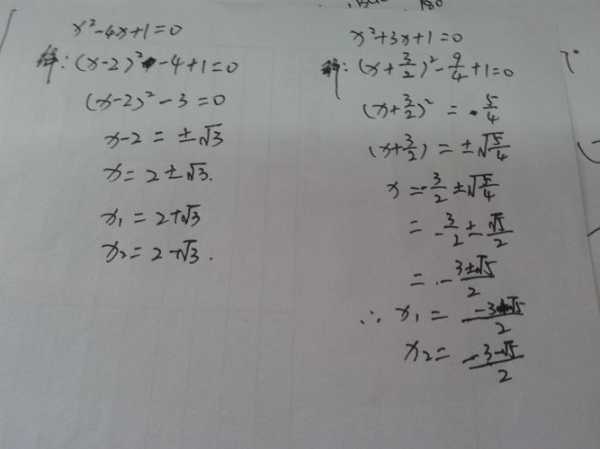 x²-4x+1=0
解:(x-2)²-4+1=0
(x-2)²-3=0
x-2=±√3
x=2±√3.
x₁=2+√3
x₂=2-√3.
x²+3x+1=0
解:(x+3/2)²-9/4+1=0
(x+3/2)²=5/4
(x+3/2)=±√(5/4)
x=-3/2±√(5/4)
=-3/2±√5/2
=-3±√5/2
∴x₁=-3+√5/2
x₂=-3-√5/2